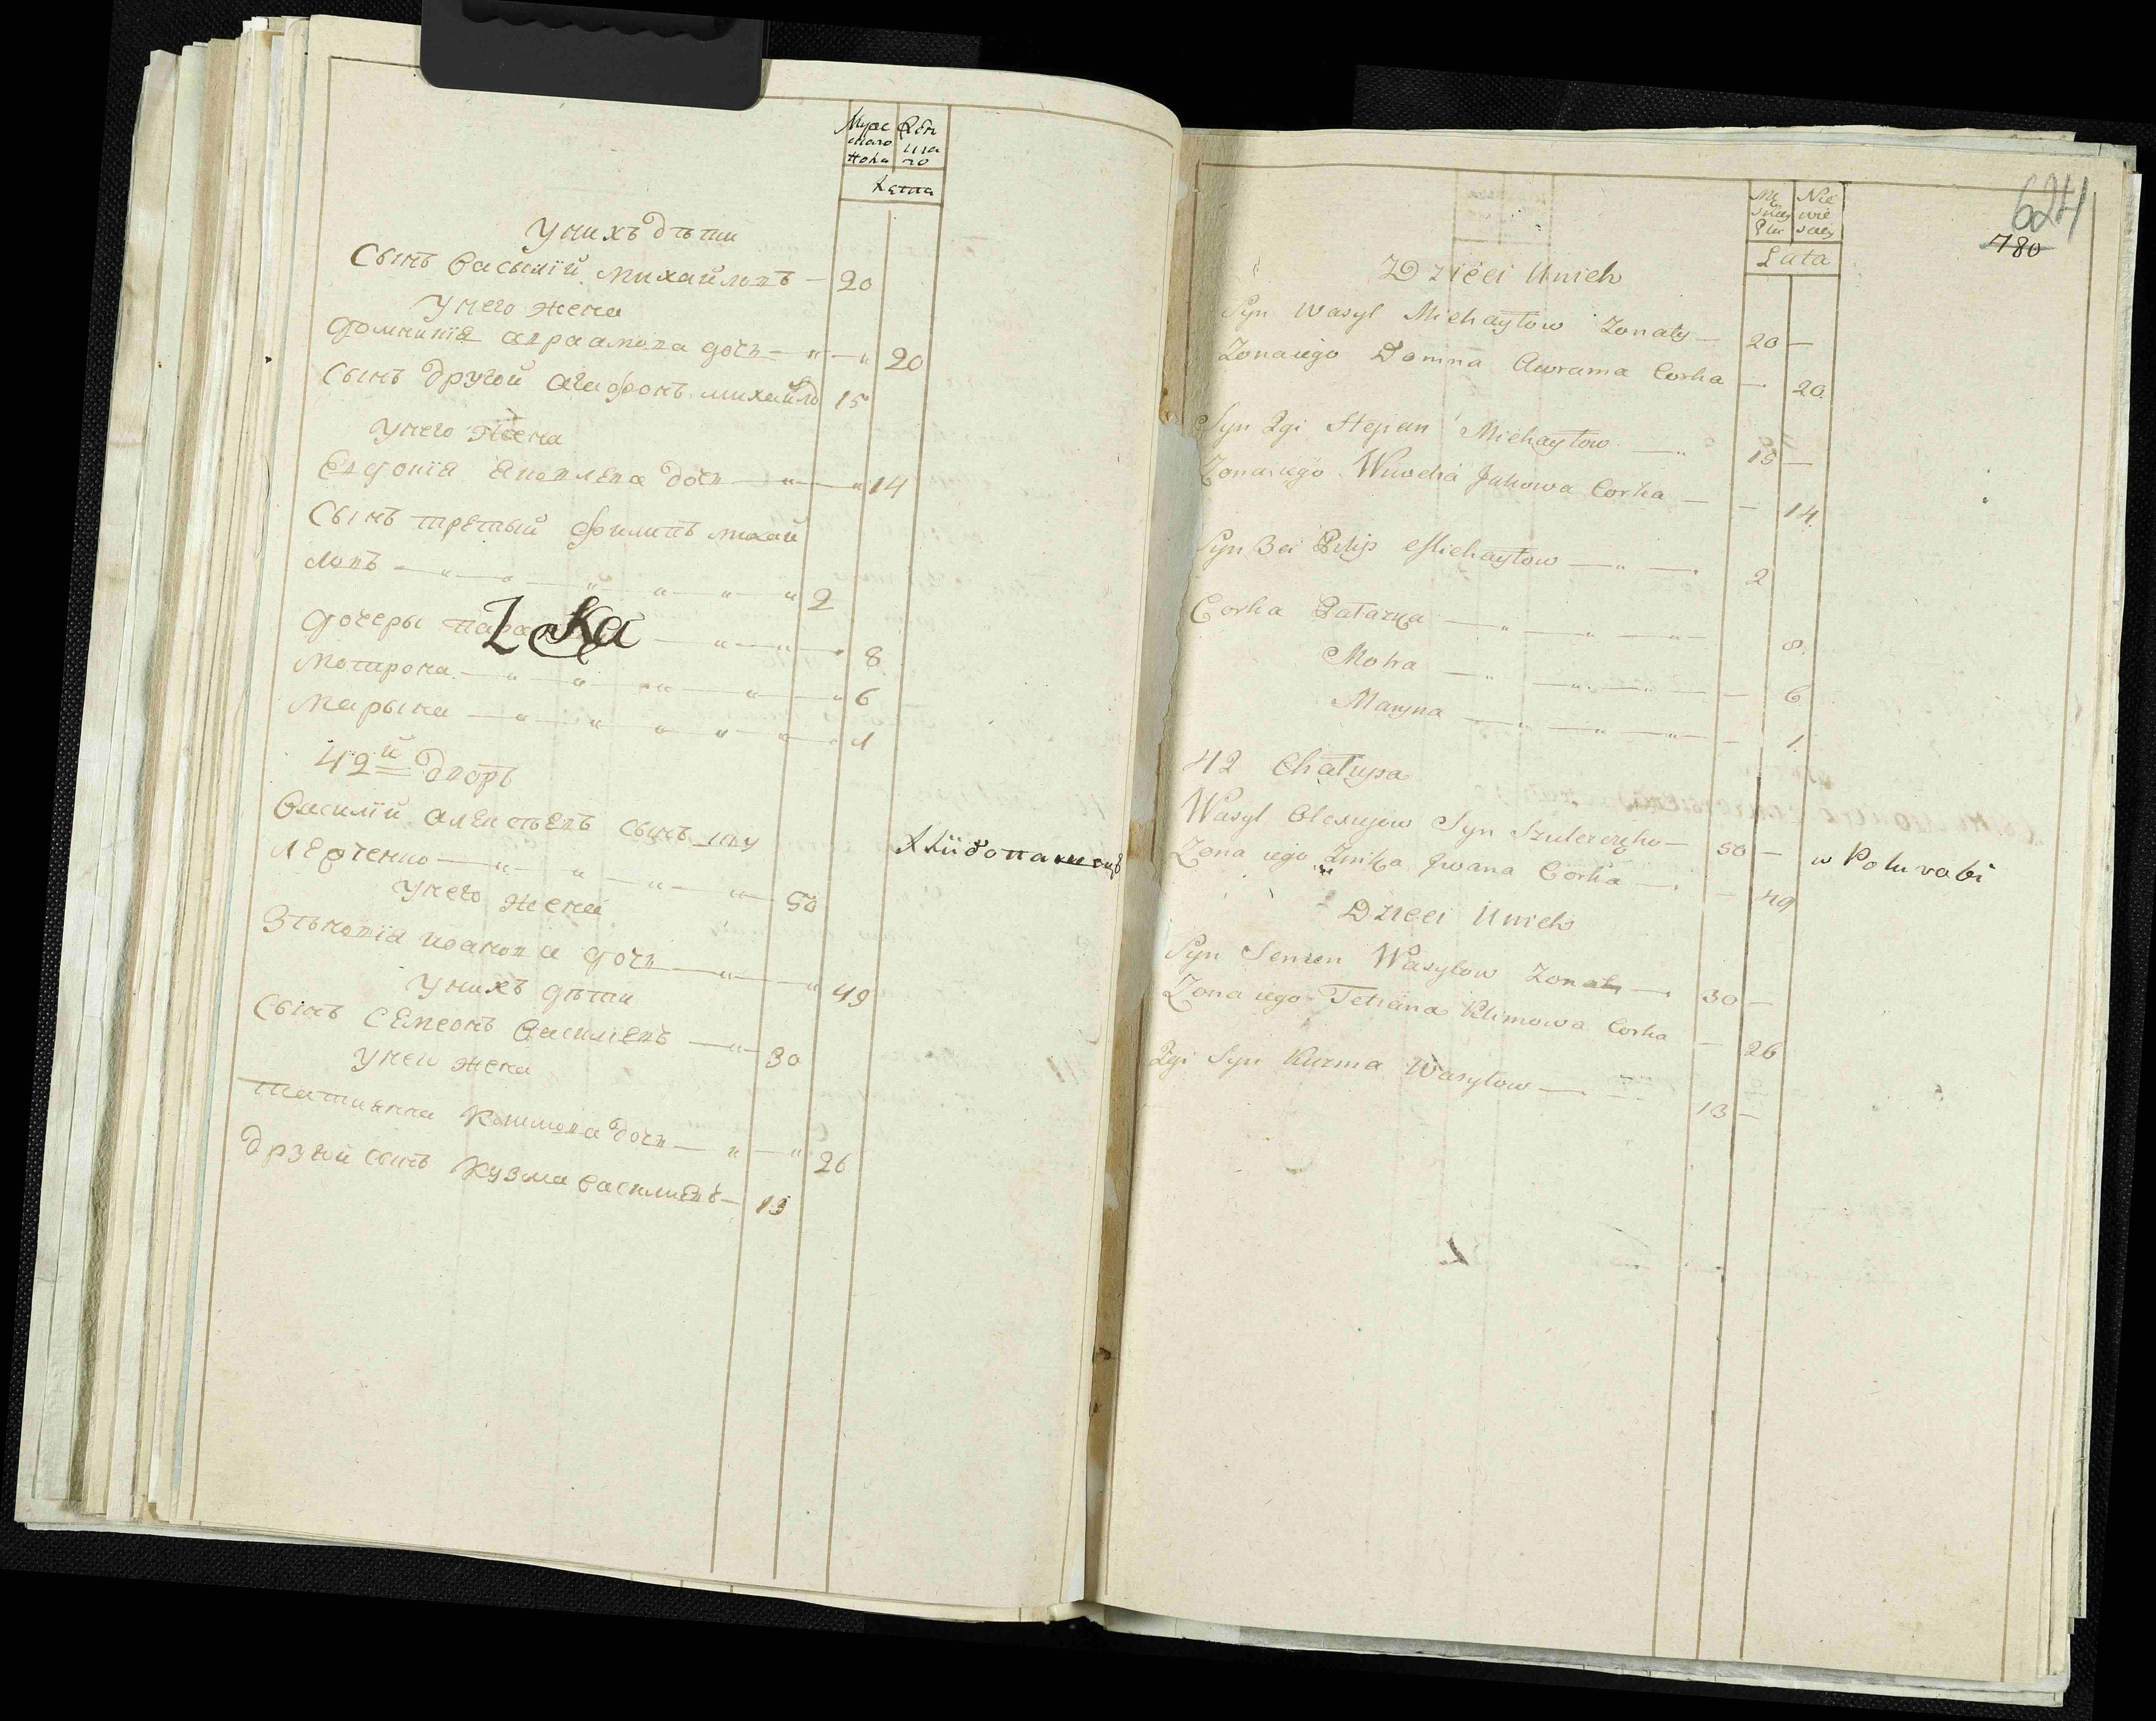 Мужескаго пола
Женскаго
Лѣта
У нихъ дѣти
Сынъ Василій Михайловъ — 20
У него жена
Домникія Авраамова дочь — " — " 20
Сынъ другой Агафонъ Михайло 15
У него жена
Евдокія Яковлева дочь — " — " 14
Сынъ третый Филипъ Михай
ловъ — " — " — " — " — " 2
Дочеры — " — " 8
Мотрона — " — " — " — " — " 6
Марына — " — " — " — " — " 1
42й дворъ
Василій Алексѣевъ сынъ Шу
лерченко — " — " — " — " 50
У него жена
Зѣновія Иванова дочь — " — " 49
У нихъ дѣти
Сынъ Семеонъ Василіевъ — " — 30
У него жена
Татияна Климова дочь — " — " 26
Другой сынъ Кузма Василиевъ — 13
624
780
Męs
Nie
wie
Lata
Dzieci Unich
Syn Wasyl Michayłow Zonaty — 20 —
Zona iego Domna Awrama Corka — 20.
Syn 2gi Stepan Michayłow — " 15 —
Zona iego Jakowa Corka — — 14.
Syn 3ci Pilip Michayłow — " — 2
Corka — " — " — " — 8.
Motra — " — " — " — — 6
Maryna — " — " — " — 1.
42 Chałupa
Wasyl Olexiejow Syn Szulerczęko — 50 — w Poku robi
Zona iego Zinka Jwana Corka — — 49
Dzieci Unich
Syn Semen Wasylow Zonaty — 30 —
Zona iego Tetiana Klimowa Corka — 26
2gi Syn Kuzma Wasylow — 13 —